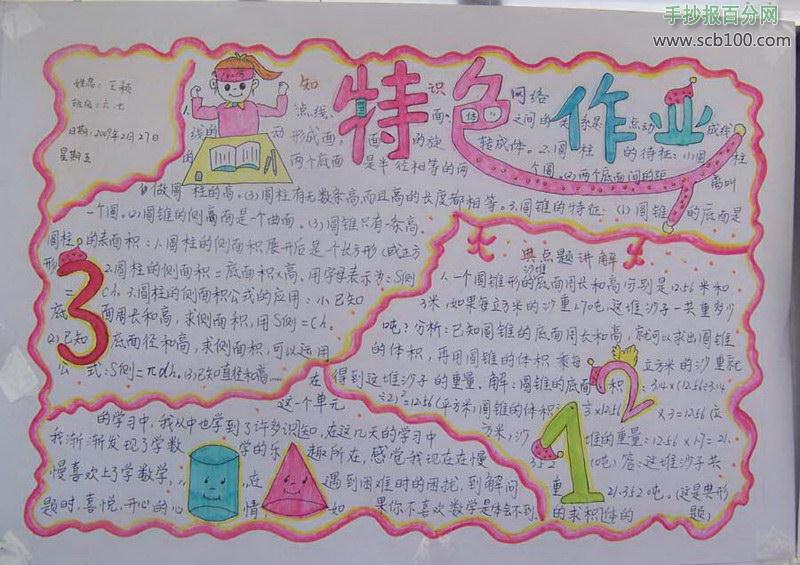 手抄报百分网
www.scb100.com
姓名：王颖
班级：六.七
日期：2009年2月27日
星期五
特色作业
知识网络
1. 点线、面、体之间的关系是点动成线
线的 动形成面，面的旋转成体。2.圆柱的特征：(1)圆柱
的 两个底面是半径相等的两个圆。(2)两个底面间的距离叫
做圆柱的高。(3)圆柱有无数条高，而且高的长度都相等。3.圆锥的特征：(1)圆锥的底面是
一个圆。(2)圆锥的侧面是一个曲面。(3)圆锥只有一条高。
圆柱的表面积：1.圆柱的侧面积展开后是一个长方形（或正方
形）2.圆柱的侧面积=底面积×高，用字母表示为：S侧
=Ch。3.圆柱的侧面积公式的应用：(1)已知
底面周长和高，求侧面积，用S侧=Ch。
(2)已知底面直径和高，求侧面积，可以运用
公式：S侧=πdh。(3)已知直径和高……
3
典点题讲解
1.一个圆锥形的沙堆底面周长和高分别是12.56米和
3米，如果每立方米的沙重1.70吨，这堆沙子一共重多少
吨？分析：已知圆锥的底面周长和高，就可以求出圆锥
的体积，再用圆锥的体积乘每立方米的沙重就
得到这堆沙子的重量。解：圆锥的底面积：3.14×(12.56÷3.14
÷2)²=12.56(平方米)圆锥的体积：⅓×12.56×3=12.56(立
方米)沙堆的重量：12.56×1.7=21.
352(吨)答：这堆沙子共
重21.352吨。（这是典形
的求积体的题）
2
1
在
这一个单元
的学习中，我从中也学到了许多识知，在这几天的学习中
我渐渐发现了学数学的乐趣所在，感觉我现在在慢
慢喜欢上了学数学，在遇到困难时的困扰，到解问
题时，喜悦，开心的心情，如果你不喜欢数学是体会不到